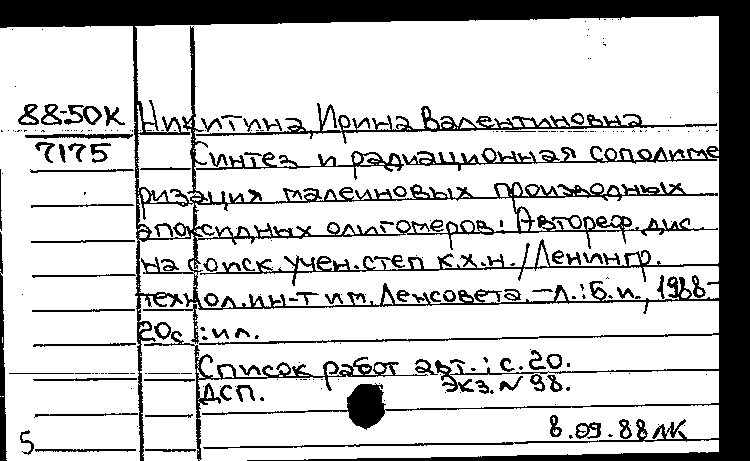 88-50К Никитина, Ирина Валентиновна
7175 Синтез и радиационная сополиме
ризация малеиновых производных
эпоксидных олигомеров: Автореф. дис.
на соиск. учен. степ к.х.н. / Ленингр.
технол. ин-т им. Ленсовета. – Л.: Б.и., 1988 –
20с.: ил.
Список работ авт.: с. 20.
ДСП. Экз. N 98.
8.09.88 ЛК
5